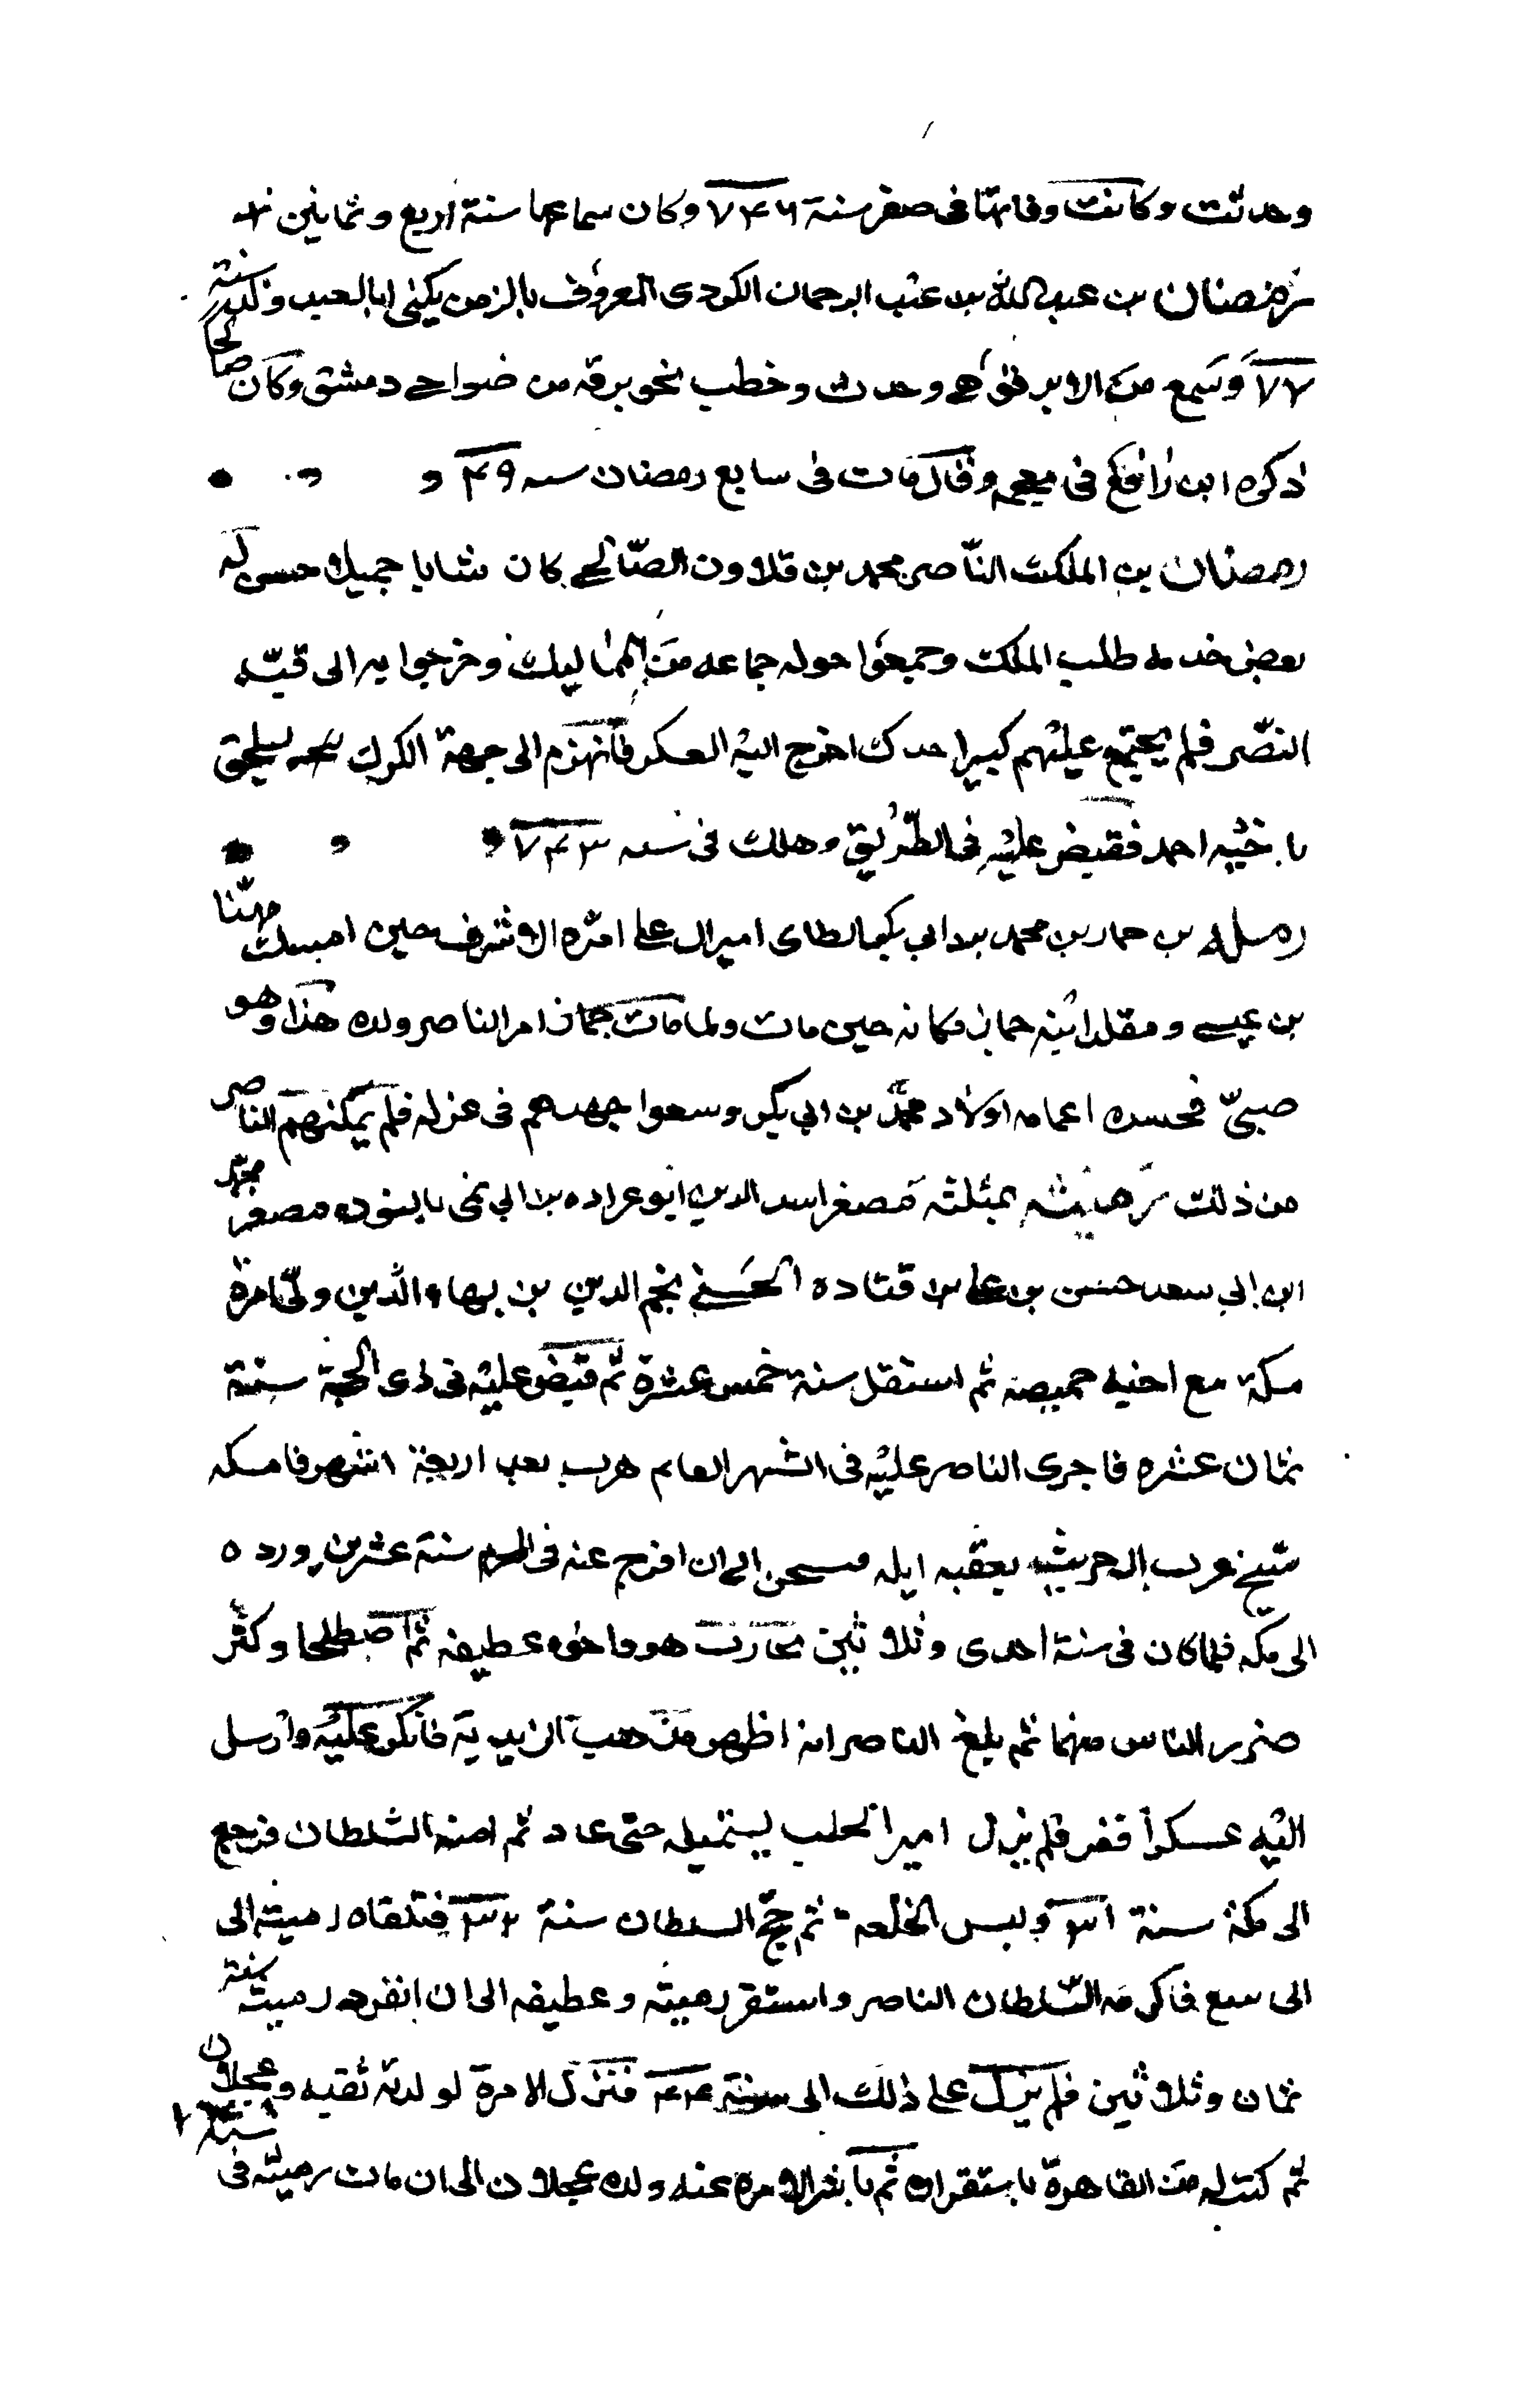 وحدثت وكانت وفاتها فى صفر سنة ٧٤٦ وكان سماعها سنة اربع وثمانين
رمضان بن عبد الله بن عبد الرحمان الكردى المعروف بالزمن يكنى ابا العيد ولد سنة
٧٧ وسمع من الابرقوهى وحدث وخطب نحو برقه من ضواحى دمشق وكان صالحا
ذكره ابن رافع فى معجمه وقال مات فى سابع رمضان سنه ٤٩
رمضان بن الملك الناصر محمد بن قلاون الصالحى كان شابا جميلا حسن له
بعض خدمه طلب الملك وجمعوا حوله جماعه من المماليك وخرجوا به الى قبة
النصر فلم يجتمع عليهم كبير احد ك اخرج اليه العسكر فانهزم الى جهة الكرك ليلحق
باخيه احمد فقبض عليه فى الطريق وهلك فى سنه ٧٤٣
رمله بن حماز بن محمد بن ابى بكر الطاى امير ال على امره الاشرف حين امسك مهنا
بن عيسى ومقلد ابنه حماز مكانه حين مات ولما مات جماز امر الناصر ولده هذا وهو
صبى فحسده اعمامه اولاد محمد بن ابى بكر وسعوا جهدهم فى عزله فلم يمكنهم الناصر
من ذلك رميثه بمثلثه مصغر اسد الدين ابو عراده بن ابى نمى بالنون مصغر محمد
ابن ابى سعد حسن بن على بن قتاده الحسنى نجم الدين بن بهاء الدين ولى امرة
مكة مع اخيه حميضه ثم استقل سنة خمس عشرة ثم قبض عليه فى ذى الحجة سنة
ثمان عشره فاجرى الناصر عليه فى الشهر الفا ثم هرب بعد اربعة اشهر فامسكه
شيخ عرب ال حريث بعقبه ايله فسجن الى ان افرج عنه فى المحرم سنة عشرين ورده
الى مكه فلما كان فى سنة احدى وثلاثين تحارب هو واخوه عطيفه ثم اصطلحا وكثر
ضرر الناس منهما ثم بلغ الناصر انه اظهر مذهب الزيديه فانكر عليه وارسل
اليه عسكرا ففر فلم يزل امير الحلب يستميله حتى عاد ثم امنه السلطان فرجع
الى مكة سنة ٣١ ولبس الخلعه ثم حج السلطان سنة ٣٢ فتلقاه رميثه الى
الى ينبع فاكرمه السلطان الناصر واستقر رميثه وعطيفه الى ان انفرد رميثه سنة
ثمان وثلاثين فلم يزل على ذلك الى سنة ٤٤ فنزل الامرة لولديه ثقبه وعجلان
ثم كتب له من القاهرة باستقراره ثم باشر الامرة عنه ولده عجلان الى ان مات رميثه فى